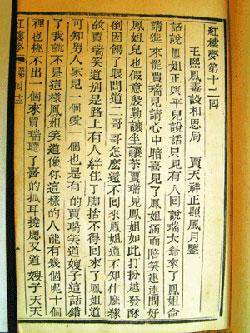 紅樓夢第十二回
王熙鳳毒設相思局 賈天祥正照風月鑑
話說鳳姐正與平兒說話只見有人回說瑞大爺來了鳳姐命
請進來賈瑞見請心中暗喜見了鳳姐滿面陪笑連連問好
鳳姐兒也假意殷勤讓坐讓茶賈瑞見鳳姐如此打扮越發酥
倒了眼問道二哥哥怎麽還不回來鳳姐道不知什麽緣
故賈瑞笑道別是路上有人絆住了脚捨不得回來了鳳姐道
可知男人家見一個愛一個也是有的賈瑞笑道嫂子這話錯
了我就不是這樣鳳姐笑道像你這樣的人能有幾個呢十個
裡也挑不出一個來賈瑞聽了喜的抓耳撓腮又道嫂子天天
紅樓夢